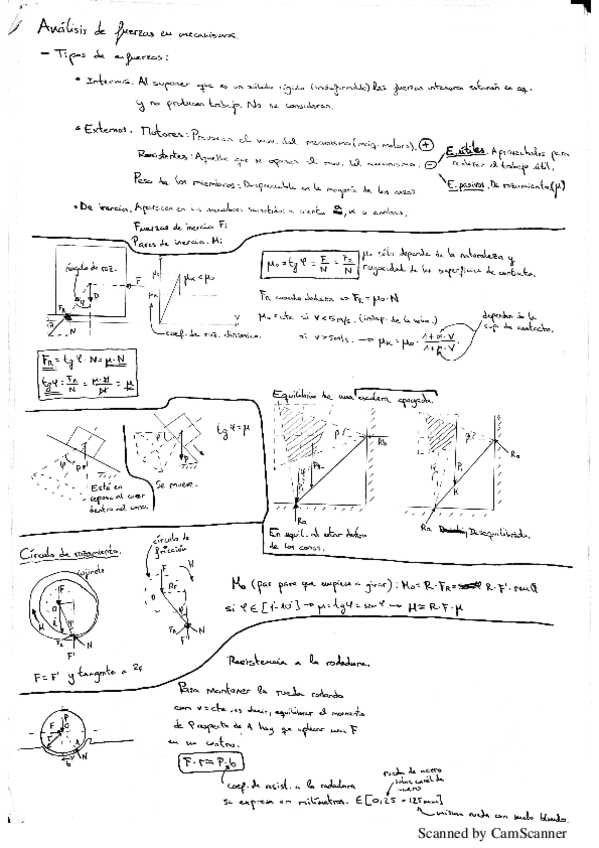 Análisis de fuerzas en mecanismos.
- Tipos de esfuerzos:
• Internas. Al suponer que es un sólido rígido (indeformable) las fuerzas interiores estarán en eq.
y no producen trabajo. No se consideran.
• Externas. Motores: Provocan el mov. del mecanismo (máq. motora). +
Resistentes: Aquellas que se oponen al mov. del mecanismo. -
E. útiles. Aprovechados para
realizar el trabajo útil.
E. pasivos. De rozamiento (μ)
Peso de los miembros: Despreciable en la mayoría de los casos
• De inercia. Aparecen en los miembros sometidos a cierta Ω, α o ambas.
Fuerzas de inercia Fi
Pares de inercia. Mi
ángulo de roz.
μk < μ0
coef. de roz. dinámico.
μ0 = tg φ = F/N = FR/N
μ0 sólo depende de la naturaleza y
rugosidad de las superficies de contacto.
FR cuando desliza => FR = μ0·N
μ0 = cte si V < 5m/s.
si V > 5m/s. → μk = μ0·
depende de la
sup. de contacto.
FR = tg φ · N = μ·N
tg φ = FR/N = μ·N/N = μ
Está en
reposo al caer
dentro del cono.
Se mueve.
tg φ = μ
Equilibrio de una escalera apoyada.
Ra
Rb
En equil. al estar dentro
de los conos.
Ra
Desequilibrada.
Círculo de rozamiento.
cojinete
F = F' y tangente a Rf
círculo de
fricción
M0 (par para que empiece a girar): M0 = R·FR = R·F'·sen φ
si φ ∈ [1-10°] → μ = tg φ = sen φ → M ≅ R·F·μ
Resistencia a la rodadura.
Para mantener la rueda rodando
con v=cte. es decir, equilibrar el momento
de P respecto de A hay que aplicar una F
en su centro.
F·r = P·b
coef. de resist. a la rodadura
se expresa en milímetros. ∈ [0,25 - 125mm]
rueda de acero
sobre carril de
acero
misma rueda con suelo blando.
Scanned by CamScanner